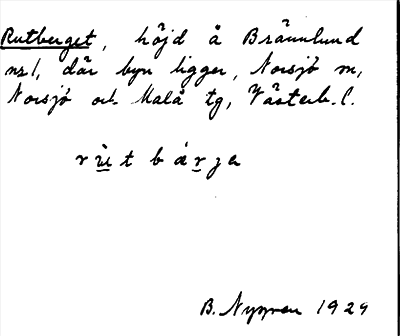 Rutberget, höjd å Brännlund
nr 1, där byn ligger, Norsjö sn,
Norsjö och Malå tg, Västerb. l.
rùt bárjə
B. Nygren 1929